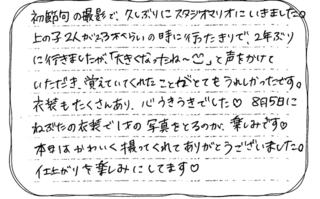 初節句の撮影で、久しぶりにスタジオマリオにいきました。
上の子2人が3才くらいの時に行ったきりで、2年ぶり
に行きましたが、「大きくなったね〜☺」と声をかけて
いただき、覚えていてくれたことがとてもうれしかったです。
衣装もたくさんあり、心うきうきでした♡ 8月5日に
ねぶたの衣装で1才の写真をとるのが、楽しみです♡
本日はかわいく撮ってくれてありがとうございました。
仕上がりを楽しみにしてます♡